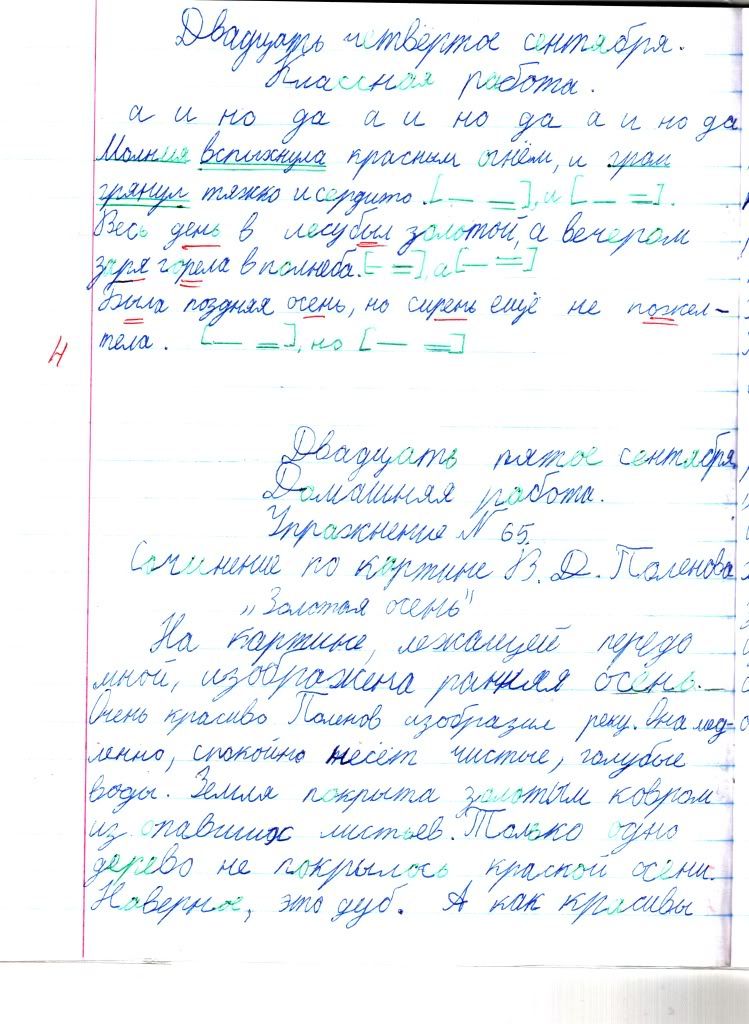 Двадцать четвёртое сентября.
Классная работа.
а и но да а и но да а и но да
Молния вспыхнула красным огнём, и гром
грянул тяжко и сердито. [— =], и [— =].
Весь день в лесу был золотой, а вечером
заря горела в полнеба. [— =], а [— =]
Была поздняя осень, но сирень ещё не пожел-
тела. [— =], но [— =]
Н
Двадцать пятое сентября
Домашняя работа.
Упражнение № 65.
Сочинение по картине В. Д. Поленова
„Золотая осень"
На картине, лежащей передо
мной, изображена ранняя осень.
Очень красиво Поленов изобразил реку. Она мед-
ленно, спокойно несёт чистые, голубые
воды. Земля покрыта золотым ковром
из опавших листьев. Только одно
дерево не покрылось краской осени.
Наверное, это дуб. А как красивы